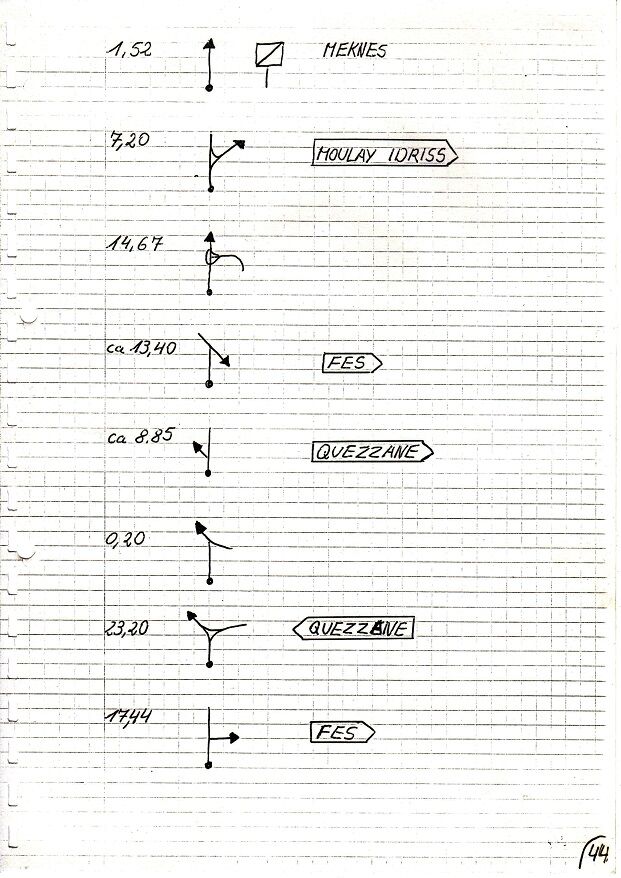 1,52 MEKNES
7,20 MOULAY IDRISS
14,67
ca 13,40 FES
ca 8.85 QUEZZANE
0,20
23,20 QUEZZANE
17,44 FES
44